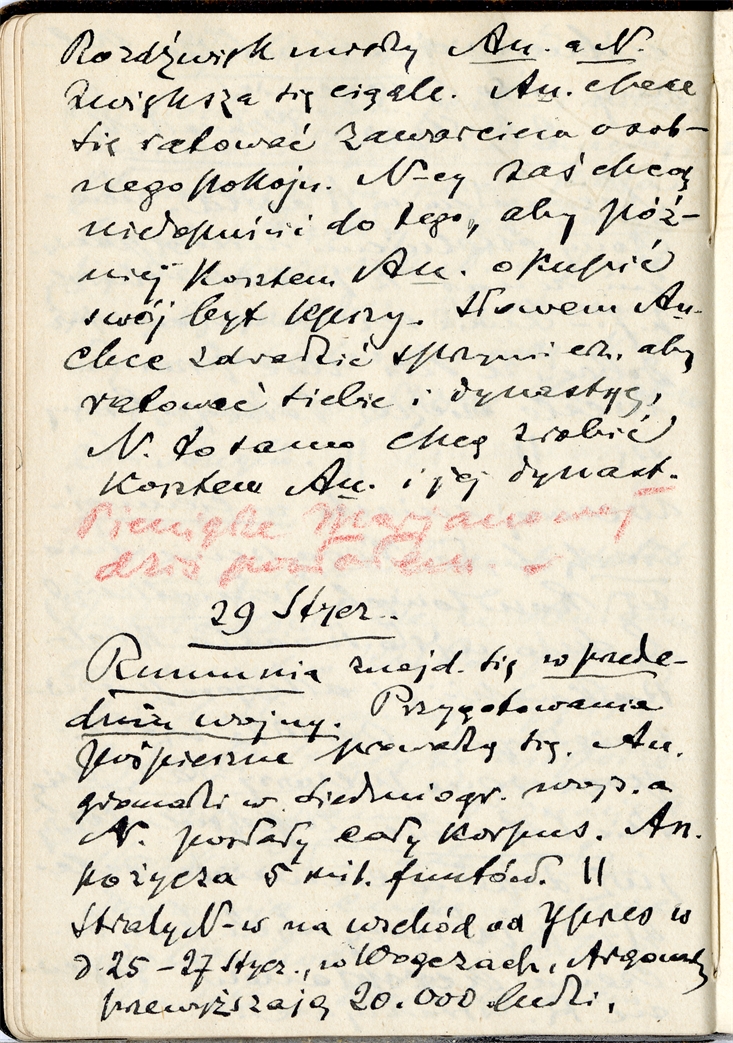 Rozdźwięk między Au. a N.
zwiększa się ciągle. Au. chce
się ratować zawarciem osob-
nego pokoju. N-cy zaś chcą
niedopuścić do tego, aby póź-
niej kosztem Au. okupić
swój byt kpszy. Słowem Au.
chce zdradzić sprzymierz. aby
ratować siebie i dynastyę,
N. to samo chcą zrobić
kosztem Au. i jej dynast.
Pieniądze Marjanowej
dziś posłałem.
29 Stycz.
Rumunia znajd. się w prede-
dniu wojny. Przygotowania
pośpieszne prowadzą się. Au.
gromadzi w Siedmiogr. wojs. a
N. posłały cały korpus. An.
pożycza 5 mil. funtów. ||
Straty N-w na wschód od Ypres w
d. 25-27 Stycz., w Wogezach, Argonach
przewyższają 20.000 ludzi,